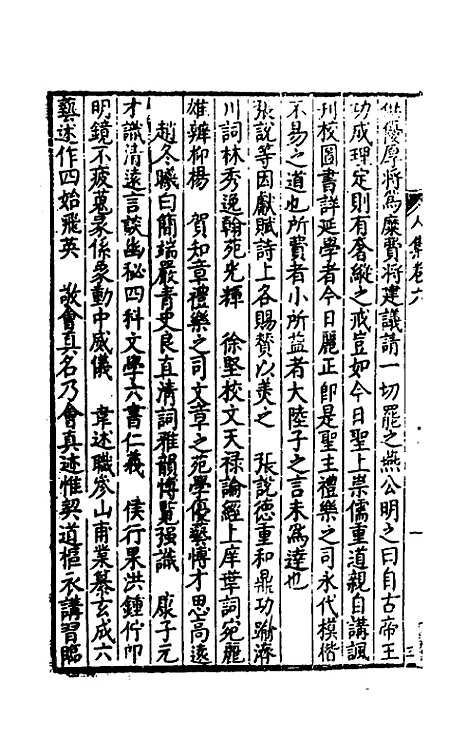 供優厚將爲糜費將建議請一切罷之燕公明之曰自古帝王
功成理定則有奢縱之戒豈如今日聖上崇儒重道親自講諷
刊校圖書詳延學者今日麗正即是聖主禮樂之司永代模楷
不易之道也所費者小所益者大陸子之言未爲達也
張說等因獻賦詩上各賜贊以美之　張說德重和鼎功踰濟
川詞林秀逸翰苑光輝　徐堅校文天祿論經上庠葉詞宛麗
雄辨抑楊　賀知章禮樂之司文章之苑學優藝博才思高遠
趙冬曦曰簡端嚴書史良直清詞雅韻博覽強識　康子元
才識清遠言談幽秘四科文學六書仁義　侯行果洪鍾佇叩
明鏡不疲蒐象係象動中威儀　韋述職參山甫業纂玄成六
藝述作四始飛英　敬會真名乃會真迹惟契道樞衣講習臨
人集卷六